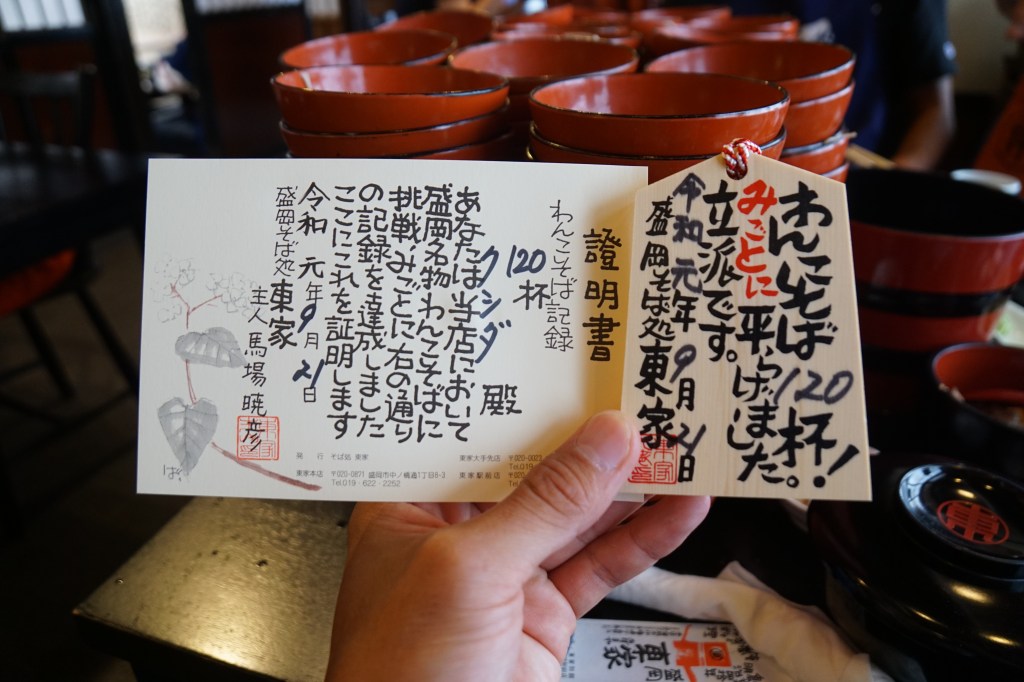 證明書
わんこそば記録
120杯
クンダ 殿
あなたは当店において
盛岡名物わんこそばに
挑戦みごとに右の通り
の記録を達成しました
ここにこれを証明します
令和元年9月21日
盛岡そば処 東家
主人 馬場暁彦
発行 そば処 東家
東家本店 〒020-0871 盛岡市中ノ橋通1丁目8-3
Tel.019・622・2252
東家大手先店 〒020-0023
東家駅前店
わんこそば120杯!
みごとに平らげました。
立派です。
令和元年9月21日
盛岡そば処東家
盛岡
東家